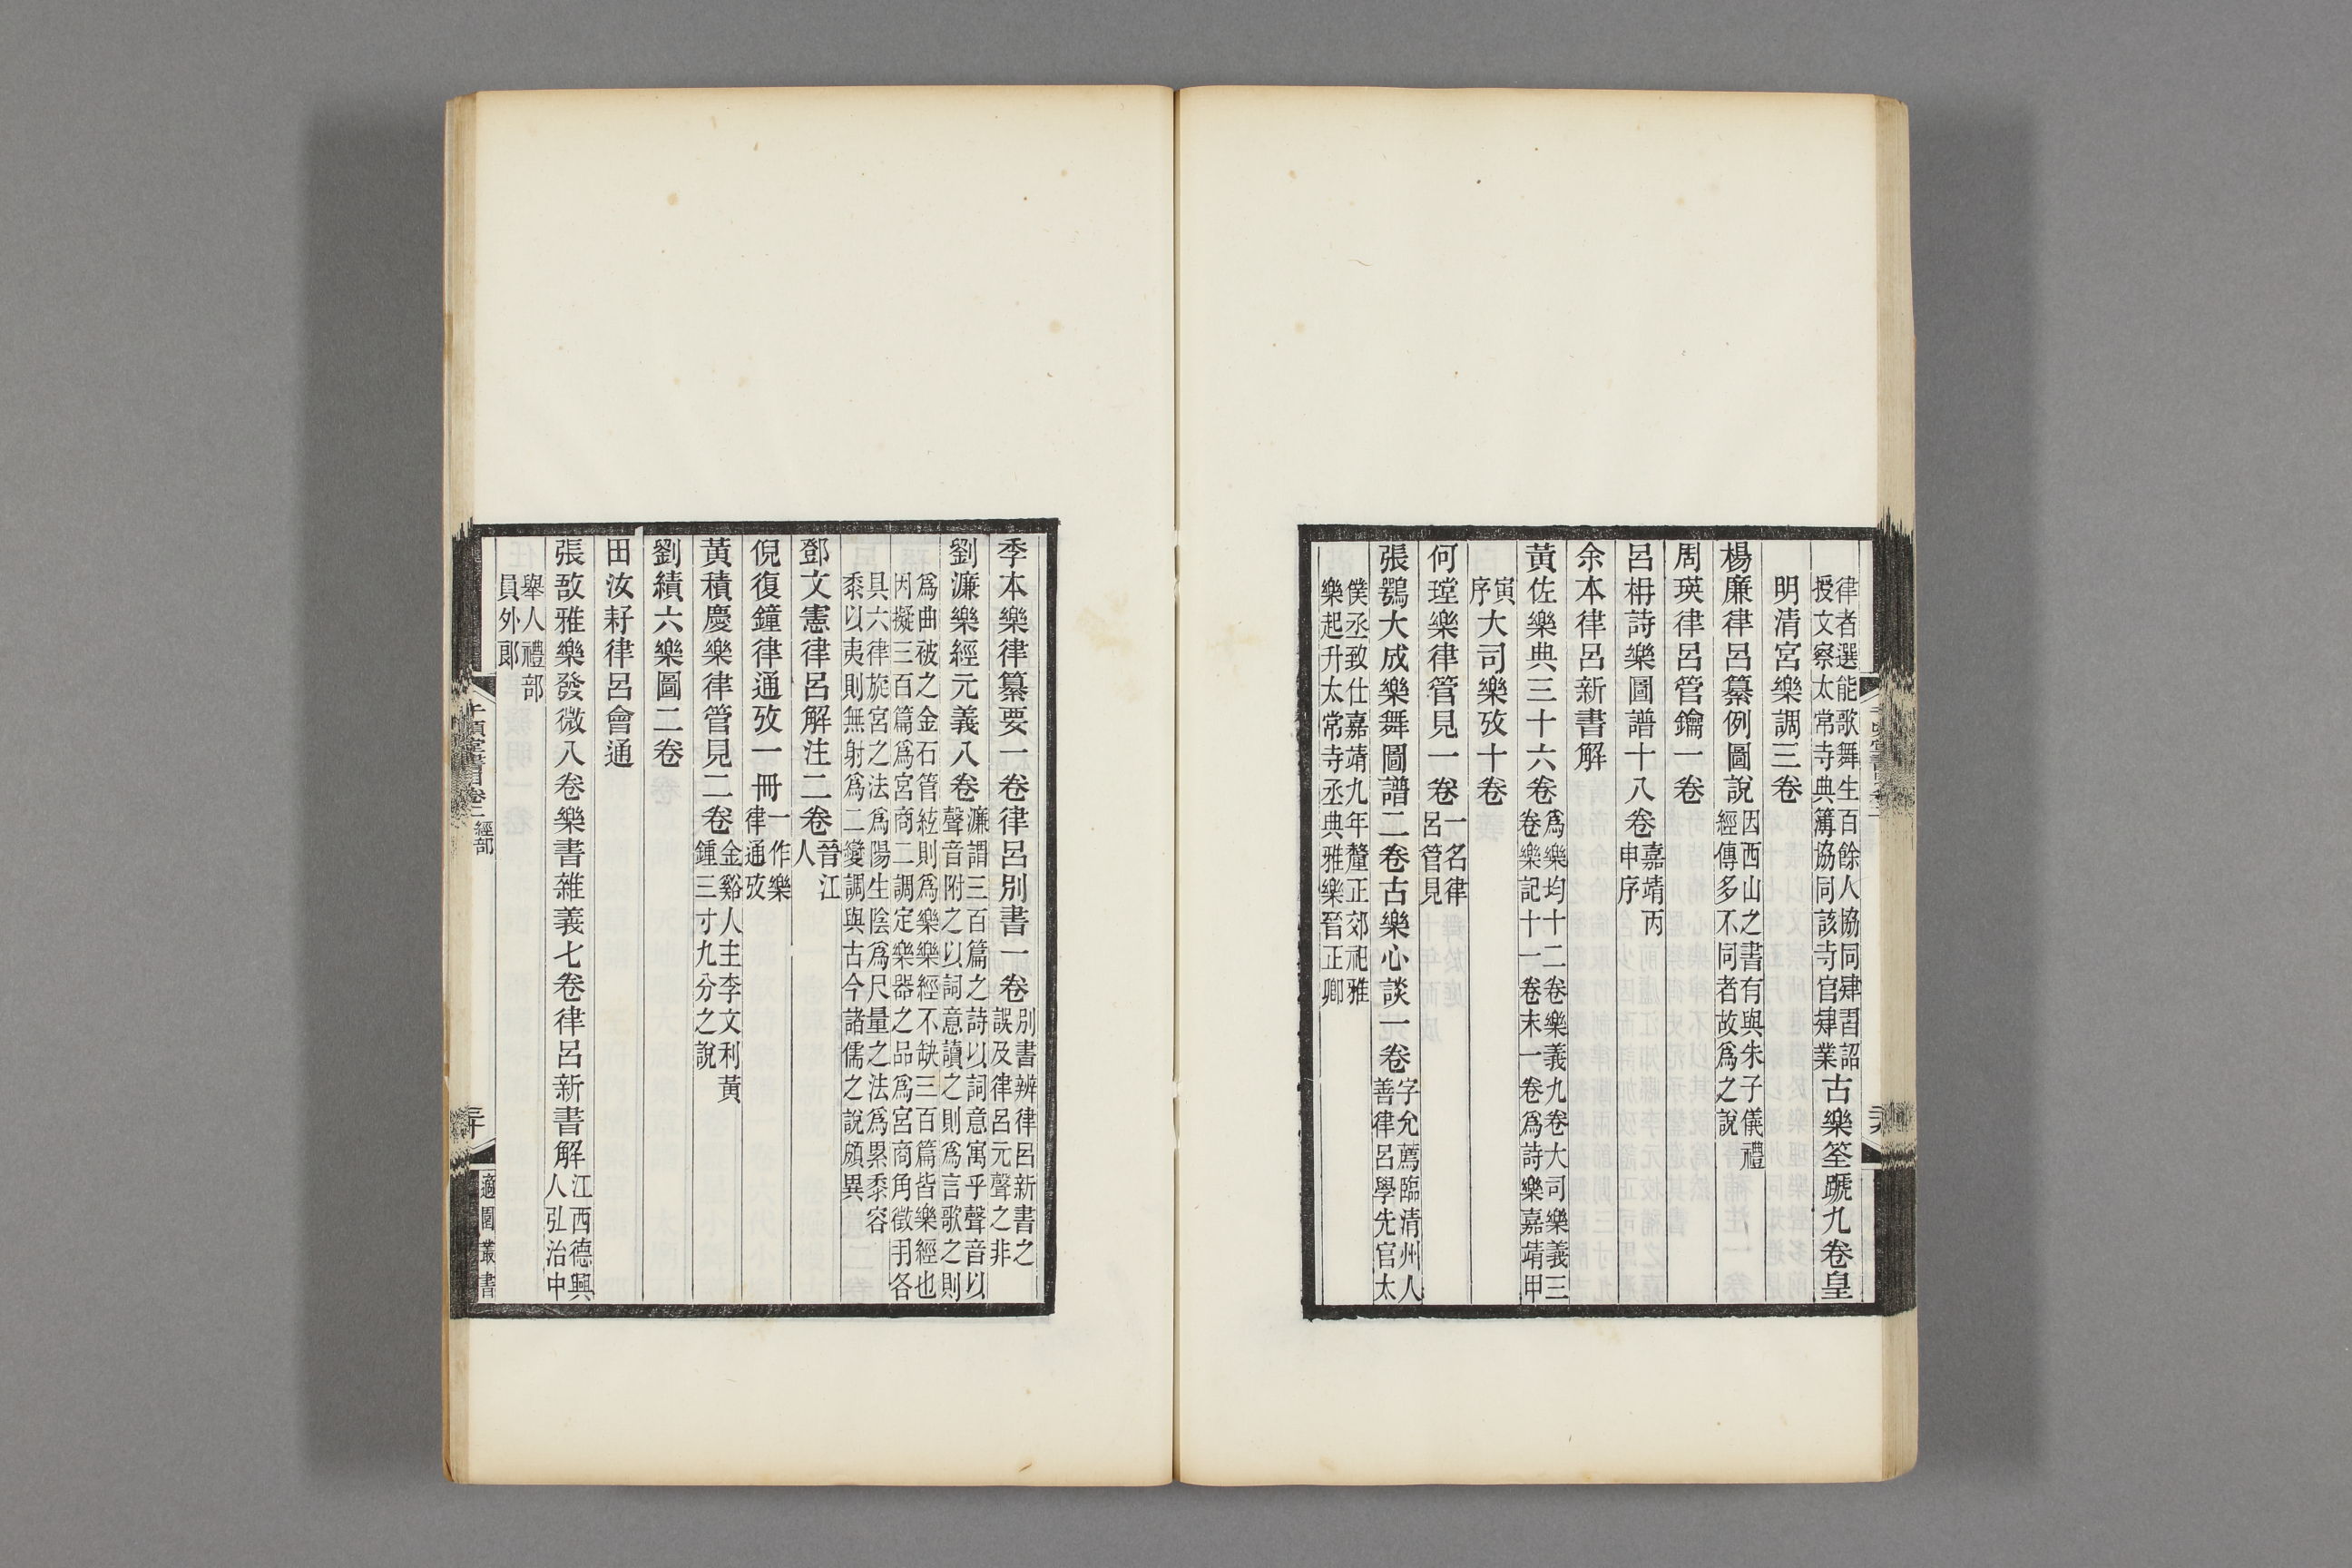 律者選能歌舞生百餘人協同肄習詔
授文察太常寺典簿協同該寺官肄業
古樂筌蹏九卷皇
明清宮樂調三卷
楊廉律呂纂例圖說
因西山之書有與朱子儀禮
經傳多不同者故爲之說
周瑛律呂管鑰一卷
呂柟詩樂圖譜十八卷
嘉靖丙
申序
余本律呂新書解
黃佐樂典三十六卷
爲樂均十二卷樂義九卷大司樂義三
卷樂記十一卷末一卷爲詩樂嘉靖甲
寅
序
大司樂攷十卷
何瑭樂律管見一卷
一名律
呂管見
張鶚大成樂舞圖譜二卷古樂心談一卷
字允薦臨清州人
善律呂學先官太
僕丞致仕嘉靖九年釐正郊祀雅
樂起升太常寺丞典雅樂晉正卿
季本樂律纂要一卷律呂別書一卷
別書辨律呂新書之
誤及律呂元聲之非
劉濂樂經元義八卷
濂謂三百篇之詩以詞意寓乎聲音以
聲音附之以詞意讀之則爲言歌之則
爲曲被之金石管絃則爲樂樂經不缺三百篇皆樂經也
因擬三百篇爲宮商二調定樂器之品爲宮商角徵羽各
具六律旋宮之法爲陽生陰爲尺量之法爲累黍容
黍以夷則無射爲二變調與古今諸儒之說頗異
鄧文憲律呂解注二卷
晉江
人
倪復鐘律通攷一冊
一作樂
律通攷
黃積慶樂律管見二卷
金谿人主李文利黃
鍾三寸九分之說
劉績六樂圖二卷
田汝耔律呂會通
張敔雅樂發微八卷樂書雜義七卷律呂新書解
江西德興
人弘治中
舉人禮部
員外郎
千頃堂書目卷二
經部
三十
適園叢書